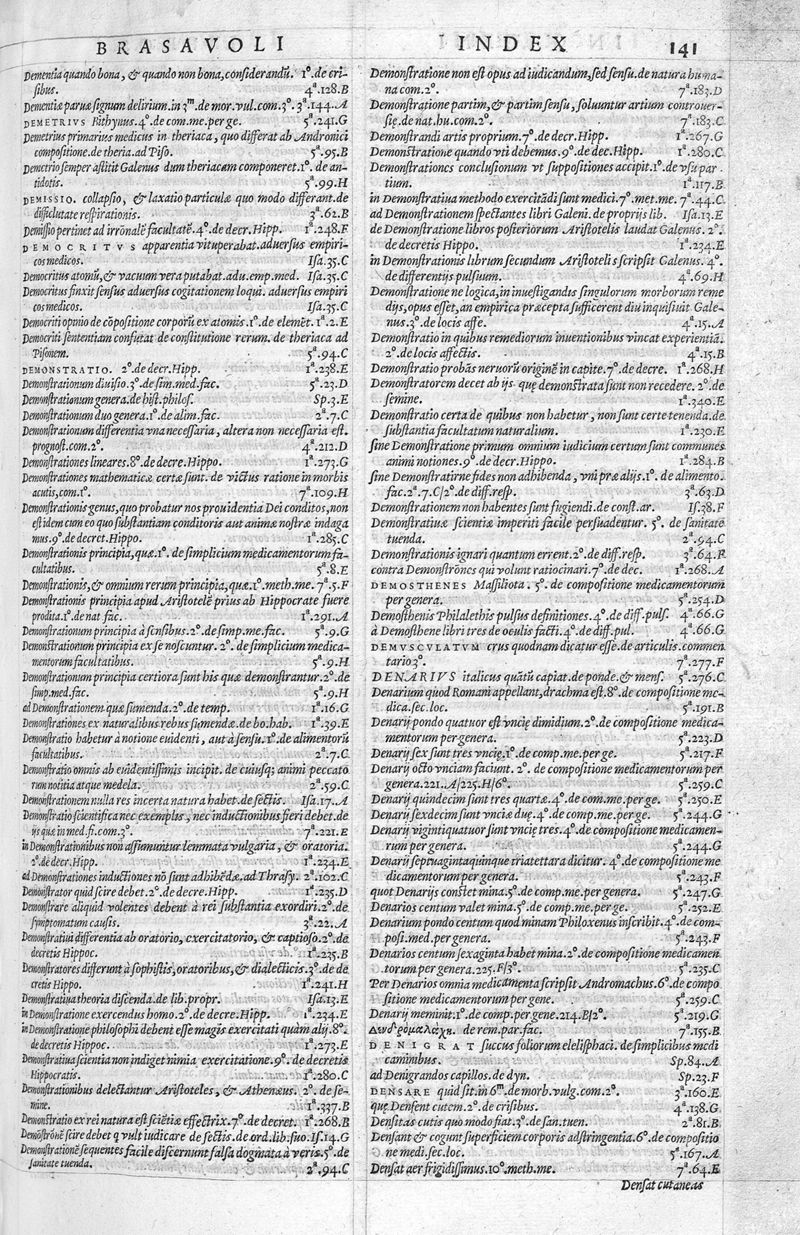 BRASAVOLI INDEX 141
Dementia quando bona, & quando non bona, considerandũ. 1°. de cri-
sibus. 4ª.128.B
Dementiæ paruæ signum delirium. in 3ᵐ. de mor. vul. com. 3°. 3ª.144.A
DEMETRIVS Bithynus. 4°. de com. me. per ge. 5ª.241.G
Demetrius primarius medicus in theriaca, quo differat ab Andronici
compositione. de theria. ad Piso. 5ª.95.B
Demetrio semper astitit Galenus dum theriacam componeret. 1°. de an-
tidotis. 5ª.99.H
DEMISSIO. collapsio, & laxatio particulæ quo modo differant. de
difficultate respirationis. 3ª.62.B
Demissio pertinet ad irrõnalẽ facultatẽ. 4°. de decr. Hipp. 1ª.248.F
DEMOCRITVS apparentia vituperabat. aduersus empiri-
cos medicos. Isa.35.C
Democritus atomũ, & vacuum vera putabat. adu. emp. med. Isa.35.C
Democritus finxit sensus aduersus cogitationem loqui. aduersus empiri
cos medicos. Isa.35.C
Democriti opinio de cõpositione corporũ ex atomis. 1°. de elemẽt. 1ª.2.E
Democriti sententiam confutat de constitutione rerum. de theriaca ad
Pisonem. 5ª.94.C
DEMONSTRATIO. 2°. de decr. Hipp. 1ª.238.E
Demonstrationum diuisio. 3°. de sim. med. fac. 5ª.23.D
Demonstrationum genera. de hist. philos. Sp.3.E
Demonstrationum duo genera. 1°. de alim. fac. 2ª.7.C
Demonstrationum differentia vna necessaria, altera non necessaria est.
prognost. com. 2°. 4ª.212.D
Demonstrationes lineares. 8°. de decre. Hippo. 1ª.273.G
Demonstrationes mathematicæ certæ sunt. de victus ratione in morbis
acutis, com. 1°. 7ª.109.H
Demonstrationis genus, quo probatur nos prouidentia Dei conditos, non
est idem cum eo quo substantiam conditoris aut animæ nostræ indaga
mus. 9°. de decret. Hippo. 1ª.285.C
Demonstrationis principia, quæ. 1°. de simplicium medicamentorum fa-
cultatibus. 5ª.8.E
Demonstrationis, & omnium rerum principia, quæ. 1°. meth. me. 7ª.5.F
Demonstrationis principia apud Aristotelẽ prius ab Hippocrate fuere
prodita. 1°. de nat fac. 1ª.291.A
Demonstrationum principia à sensibus. 2°. de simp. me. fac. 5ª.9.G
Demonstrationum principia ex se noscuntur. 2°. de simplicium medica-
mentorum facultatibus. 5ª.9.H
Demonstrationum principia certiora sunt his quæ demonstrantur. 2°. de
simp. med. fac. 5ª.9.H
ad Demonstrationem quæ sumenda. 2°. de temp. 1ª.16.G
Demonstrationes ex naturalibus rebus sumendæ. de bo. hab. 1ª.39.E
Demonstratio habetur à notione euidenti, aut à sensu. 1°. de alimentorũ
facultatibus. 2ª.7.C
Demonstratio omnis ab euidentissimis incipit. de cuiusq; animi peccato
rum notitia atque medela. 2ª.59.C
Demonstrationem nulla res incerta natura habet. de sectis. Isa.17.A
Demonstratio scientifica nec exemplis, nec inductionibus fieri debet. de
ijs quæ in med. fi. com. 3°. 7ª.221.E
in Demonstrationibus non assumuntur lemmata vulgaria, & oratoria.
2°. de decr. Hipp. 1ª.234.E
ad Demonstrationes inductiones nõ sunt adhibẽdæ. ad Thrasy. 2ª.102.C
Demonstrator quid scire debet. 2°. de decre. Hipp. 1ª.235.D
Demonstrare aliquid volentes debent à rei substantia exordiri. 2°. de
symptomatum causis. 3ª.22.A
Demonstratiui differentia ab oratorio, exercitatorio, & captioso. 2°. de
decretis Hippoc. 1ª.235.B
Demonstratores differunt à sophistis, oratoribus, & dialecticis. 3°. de de
cretis Hippo. 1ª.241.H
Demonstratiua theoria discenda. de lib. propr. Isa.13.E
in Demonstratione exercendus homo. 2°. de decre. Hipp. 1ª.234.E
in Demonstratione philosophi debent esse magis exercitati quàm alij. 8°.
de decretis Hippoc. 1ª.273.E
Demonstratiua scientia non indiget nimia exercitatione. 9°. de decretis
Hippocratis. 1ª.280.C
Demonstrationibus delectantur Aristoteles, & Athenæus. 2°. de se-
mine. 1ª.337.B
Demonstratio ex rei natura est sciẽtiæ effectrix. 7°. de decret. 1ª.268.B
Demõstrõne scire debet q vult iudicare de sectis. de ord. lib. suo. Is.14.G
Demonstrationẽ sequentes facile discernunt falsa dogmata à veris. 5°. de
sanitate tuenda. 2ª.94.C
Demonstratione non est opus ad iudicandum, sed sensu. de natura huma-
na com. 2°. 7ª.183.D
Demonstratione partim, & partim sensu, soluuntur artium controuer-
się. de nat. hu. com. 2°. 7ª.183.C
Demonstrandi artis proprium. 7°. de decr. Hipp. 1ª.267.G
Demonstratione quando vti debemus. 9°. de dec. Hipp. 1ª.280.C
Demonstrationes conclusionum vt suppositiones accipit. 1°. de vsu par
tium. 1ª.117.B
in Demonstratiua methodo exercitãdi sunt medici. 7°. met. me. 7ª.44.C
ad Demonstrationem spectantes libri Galeni. de proprijs lib. Isa.13.E
de Demonstratione libros posteriorum Aristotelis laudat Galenus. 2°.
de decretis Hippo. 1ª.234.E
in Demonstrationis librum secundum Aristotelis scripsit Galenus. 4°.
de differentijs pulsuum. 4ª.69.H
Demonstratione ne logica, in inuestigandis singulorum morborum reme
dijs, opus esset, an empirica præcepta sufficerent diu inquisiuit Gale-
nus. 3°. de locis affe. 4ª.15.A
Demonstratio in quibus remediorum inuentionibus vincat experientiã.
2°. de locis affectis. 4ª.15.B
Demonstratio probãs neruorũ originẽ in capite. 7°. de decre. 1ª.268.H
Demonstratorem decet ab ijs quę demonstrata sunt non recedere. 2°. de
semine. 1ª.340.E
Demonstratio certa de quibus non habetur, non sunt certe tenenda. de
substantia facultatum naturalium. 1ª.230.E
sine Demonstratione primum omnium iudicium certum sunt communes
animi notiones. 9°. de decr. Hippo. 1ª.284.B
sine Demonstratiõne fides non adhibenda, vni præ alijs. 1°. de alimento.
fac. 2ª.7.C/2°. de diff. resp. 3ª.63.D
Demonstrationem non habentes sunt fugiendi. de const. ar. Is.38.F
Demonstratiuæ scientiæ imperiti facile persuadentur. 5°. de sanitate
tuenda. 2ª.94.C
Demonstrationis ignari quantum errent. 2°. de diff. resp. 3ª.64.F
contra Demonstrõnes qui volunt ratiocinari. 7°. de dec. 1ª.268.A
DEMOSTHENES Massiliota. 5°. de compositione medicamentorum
per genera. 5ª.254.D
Demosthenis Philalethis pulsus definitiones. 4°. de diff. puls. 4ª.66.G
à Demosthene libri tres de oculis facti. 4°. de diff. pul. 4ª.66.G
DEMVSCVLATVM crus quodnam dicatur esse. de articulis. commen
tario 3°. 7ª.277.F
DENARIVS italicus quãtũ capiat. de ponde. & mens. 5ª.276.C
Denarium quod Romani appellant, drachma est. 8°. de compositione me-
dica. sec. loc. 5ª.191.B
Denarij pondo quatuor est vncię dimidium. 2°. de compositione medica-
mentorum per genera. 5ª.223.D
Denarij sex sunt tres vncię. 1°. de comp. me. per ge. 5ª.217.F
Denarij octo vnciam faciunt. 2°. de compositione medicamentorum per
genera. 221.A/225.H/6°. 5ª.259.C
Denarij quindecim sunt tres quartæ. 4°. de com. me. per ge. 5ª.250.E
Denarij sexdecim sunt vnciæ duę. 4°. de comp. me. per ge. 5ª.244.G
Denarij vigintiquatuor sunt vncię tres. 4°. de compositione medicamen-
rum per genera. 5ª.244.G
Denarij septuagintaquinque triatettara dicitur. 4°. de compositione me
dicamentorum per genera. 5ª.243.F
quot Denarijs constet mina. 5°. de comp. me. per genera. 5ª.247.G
Denarios centum valet mina. 5°. de comp. me. per ge. 5ª.252.E
Denarium pondo centum quod minam Philoxenus inscribit. 4°. de com-
posi. med. per genera. 5ª.243.F
Denarios centum sexaginta habet mina. 2°. de compositione medicamen
torum per genera. 225.F/3°. 5ª.235.C
Per Denarios omnia medicamenta scripsit Andromachus. 6°. de compo
sitione medicamentorum per gene. 5ª.259.C
Denarij meminit. 1°. de comp. per gene. 214.B/2°. 5ª.219.G
de rem. par. fac. 7ª.155.B
DENIGRAT succus foliorum elelisphaci. de simplicibus medi
caminibus. Sp.84.A
ad Denigrandos capillos. de dyn. Sp.23.F
DENSARE quid sit. in 6ᵐ. de morb. vulg. com. 2°. 3ª.160.E
quę Densent cutem. 2°. de crisibus. 4ª.138.G
Densitas cutis quo modo fiat. 3°. de san. tuen. 2ª.81.B
Densant & cogunt superficiem corporis adstringentia. 6°. de compositio
ne medi. sec. loc. 5ª.167.A
Densat aer frigidissimus. 10°. meth. me. 7ª.64.E
Densat cutaneas